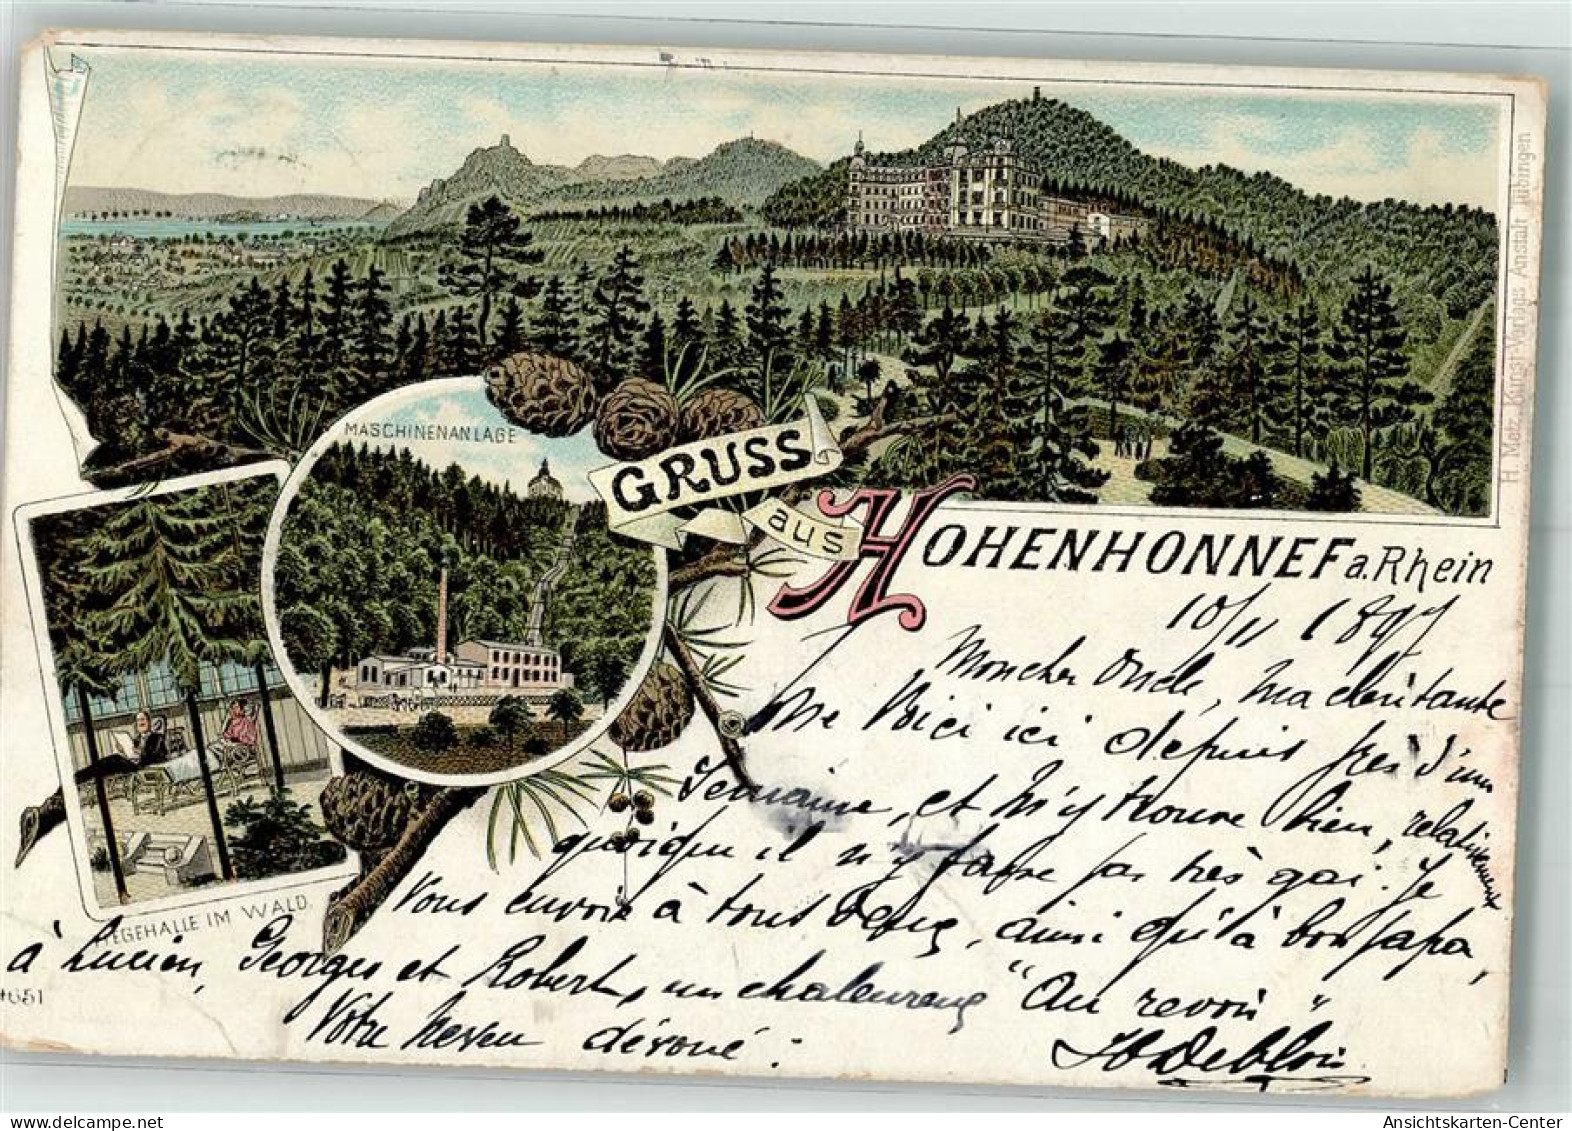 MASCHINENANLAGE
GRUSS
aus
HOHENHONNEF a. Rhein
H. Metz, Kunst-Verlags Anstalt Tübingen
LIEGEHALLE IM WALD.
4651
10/11 1897
Mon cher Oncle, ma chère tante
Me Voici ici depuis près d'une
Semaine, et m'y trouve bien, relativement
quoiqu'il n'y fasse pas très gai. Je
Vous envoie à tous deux, ainsi qu'à bon papa,
à Lucien, Georges et Robert, un chaleureux "Au revoir"
Votre neveu dévoué:
oldthing.net
Ansichtskarten-Center